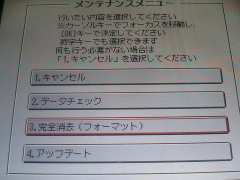 メンテナンスメニュー
行いたい内容を選択してください
※カーソルキーでフォーカスを移動し、
[OK]キーで決定してください
数字キーでも選択できます
何も行う必要がない場合は
「1.キャンセル」を選択してください
1.キャンセル
2.データチェック
3.完全消去(フォーマット)
4.アップデート